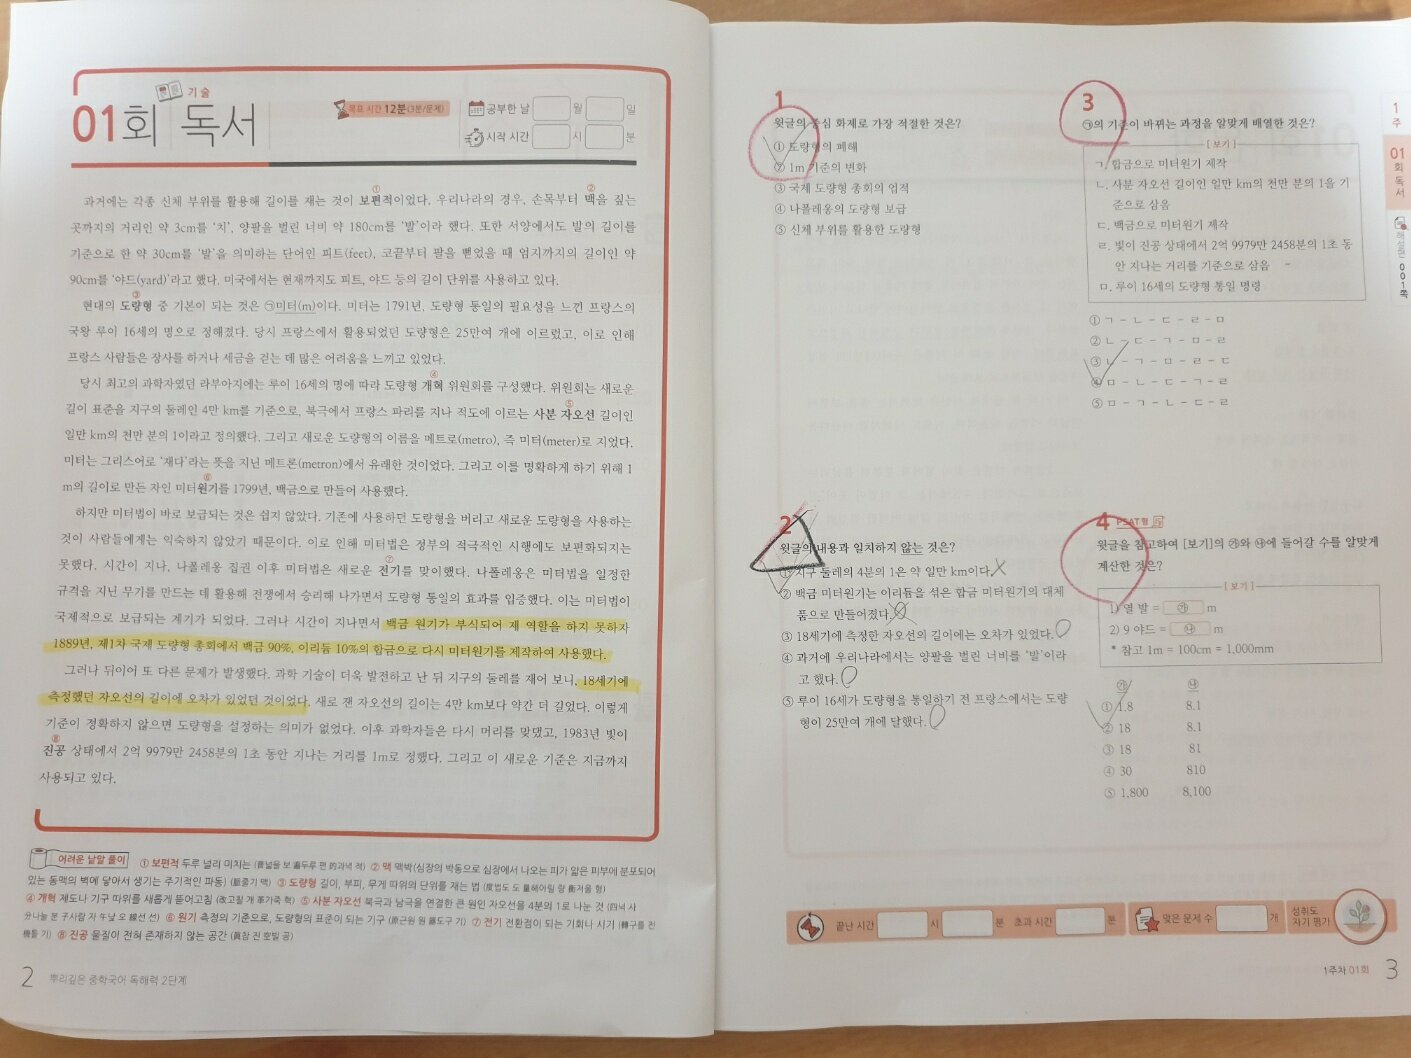 기술
01회 독서
목표 시간 12분(3분/문제)
공부한 날 월 일
시작 시간 시 분
과거에는 각종 신체 부위를 활용해 길이를 재는 것이 ①보편적이었다. 우리나라의 경우, 손목부터 ②맥을 짚는
곳까지의 거리인 약 3cm를 ‘치’, 양팔을 벌린 너비 약 180cm를 ‘발’이라 했다. 또한 서양에서도 발의 길이를
기준으로 한 약 30cm를 ‘발’을 의미하는 단어인 피트(feet), 코끝부터 팔을 뻗었을 때 엄지까지의 길이인 약
90cm를 ‘야드(yard)’라고 했다. 미국에서는 현재까지도 피트, 야드 등의 길이 단위를 사용하고 있다.
현대의 ③도량형 중 기본이 되는 것은 ㉠미터(m)이다. 미터는 1791년, 도량형 통일의 필요성을 느낀 프랑스의
국왕 루이 16세의 명으로 정해졌다. 당시 프랑스에서 활용되었던 도량형은 25만여 개에 이르렀고, 이로 인해
프랑스 사람들은 장사를 하거나 세금을 걷는 데 많은 어려움을 느끼고 있었다.
당시 최고의 과학자였던 라부아지에는 루이 16세의 명에 따라 도량형 ④개혁 위원회를 구성했다. 위원회는 새로운
길이 표준을 지구의 둘레인 4만 km를 기준으로, 북극에서 프랑스 파리를 지나 적도에 이르는 ⑤사분 자오선 길이인
일만 km의 천만 분의 1이라고 정의했다. 그리고 새로운 도량형의 이름을 메트로(metro), 즉 미터(meter)로 지었다.
미터는 그리스어로 ‘재다’라는 뜻을 지닌 메트론(metron)에서 유래한 것이었다. 그리고 이를 명확하게 하기 위해 1
m의 길이로 만든 자인 미터⑥원기를 1799년, 백금으로 만들어 사용했다.
하지만 미터법이 바로 보급되는 것은 쉽지 않았다. 기존에 사용하던 도량형을 버리고 새로운 도량형을 사용하는
것이 사람들에게는 익숙하지 않았기 때문이다. 이로 인해 미터법은 정부의 적극적인 시행에도 보편화되지는
못했다. 시간이 지나, 나폴레옹 집권 이후 미터법은 새로운 ⑦전기를 맞이했다. 나폴레옹은 미터법을 일정한
규격을 지닌 무기를 만드는 데 활용해 전쟁에서 승리해 나가면서 도량형 통일의 효과를 입증했다. 이는 미터법이
국제적으로 보급되는 계기가 되었다. 그러나 시간이 지나면서 백금 원기가 부식되어 제 역할을 하지 못하자
1889년, 제1차 국제 도량형 총회에서 백금 90%, 이리듐 10%의 합금으로 다시 미터원기를 제작하여 사용했다.
그러나 뒤이어 또 다른 문제가 발생했다. 과학 기술이 더욱 발전하고 난 뒤 지구의 둘레를 재어 보니, 18세기에
측정했던 자오선의 길이에 오차가 있었던 것이었다. 새로 잰 자오선의 길이는 4만 km보다 약간 더 길었다. 이렇게
기준이 정확하지 않으면 도량형을 설정하는 의미가 없었다. 이후 과학자들은 다시 머리를 맞댔고, 1983년 빛이
⑧진공 상태에서 2억 9979만 2458분의 1초 동안 지나는 거리를 1m로 정했다. 그리고 이 새로운 기준은 지금까지
사용되고 있다.
어려운 낱말 풀이 ① 보편적 두루 널리 미치는 (普넓을 보 遍두루 편 的과녁 적) ② 맥 맥박(심장의 박동으로 심장에서 나오는 피가 얇은 피부에 분포되어
있는 동맥의 벽에 닿아서 생기는 주기적인 파동) (脈줄기 맥) ③ 도량형 길이, 부피, 무게 따위의 단위를 재는 법 (度법도 도 量헤아릴 량 衡저울 형)
④ 개혁 제도나 기구 따위를 새롭게 뜯어고침 (改고칠 개 革가죽 혁) ⑤ 사분 자오선 북극과 남극을 연결한 큰 원인 자오선을 4분의 1로 나눈 것 (四넉 사
分나눌 분 子사람 자 午낮 오 線선 선) ⑥ 원기 측정의 기준으로, 도량형의 표준이 되는 기구 (原근원 원 器도구 기) ⑦ 전기 전환점이 되는 기회나 시기 (轉구를 전
機틀 기) ⑧ 진공 물질이 전혀 존재하지 않는 공간 (眞참 진 空빌 공)
2 뿌리깊은 중학국어 독해력 2단계
1
윗글의 중심 화제로 가장 적절한 것은?
① 도량형의 폐해
② 1m 기준의 변화
③ 국제 도량형 총회의 업적
④ 나폴레옹의 도량형 보급
⑤ 신체 부위를 활용한 도량형
2
윗글의 내용과 일치하지 않는 것은?
① 지구 둘레의 4분의 1은 약 일만 km이다.
② 백금 미터원기는 이리듐을 섞은 합금 미터원기의 대체
품으로 만들어졌다.
③ 18세기에 측정한 자오선의 길이에는 오차가 있었다.
④ 과거에 우리나라에서는 양팔을 벌린 너비를 ‘발’이라
고 했다.
⑤ 루이 16세가 도량형을 통일하기 전 프랑스에서는 도량
형이 25만여 개에 달했다.
3
㉠의 기준이 바뀌는 과정을 알맞게 배열한 것은?
[보기]
ㄱ. 합금으로 미터원기 제작
ㄴ. 사분 자오선 길이인 일만 km의 천만 분의 1을 기
준으로 삼음
ㄷ. 백금으로 미터원기 제작
ㄹ. 빛이 진공 상태에서 2억 9979만 2458분의 1초 동
안 지나는 거리를 기준으로 삼음
ㅁ. 루이 16세의 도량형 통일 명령
① ㄱ - ㄴ - ㄷ - ㄹ - ㅁ
② ㄴ - ㄷ - ㄱ - ㅁ - ㄹ
③ ㄴ - ㄱ - ㅁ - ㄹ - ㄷ
④ ㅁ - ㄴ - ㄷ - ㄱ - ㄹ
⑤ ㅁ - ㄱ - ㄴ - ㄷ - ㄹ
4 PSAT형
윗글을 참고하여 [보기]의 ㉮와 ㉯에 들어갈 수를 알맞게
계산한 것은?
[보기]
1) 열 발 = ㉮ m
2) 9 야드 = ㉯ m
* 참고 1m = 100cm = 1,000mm
㉮ ㉯
① 1.8 8.1
② 18 8.1
③ 18 81
④ 30 810
⑤ 1,800 8,100
끝난 시간 시 분 초과 시간 분
맞은 문제 수 개
성취도
자기 평가
1주
01회 독서
해설편 001쪽
1주차 01회 3